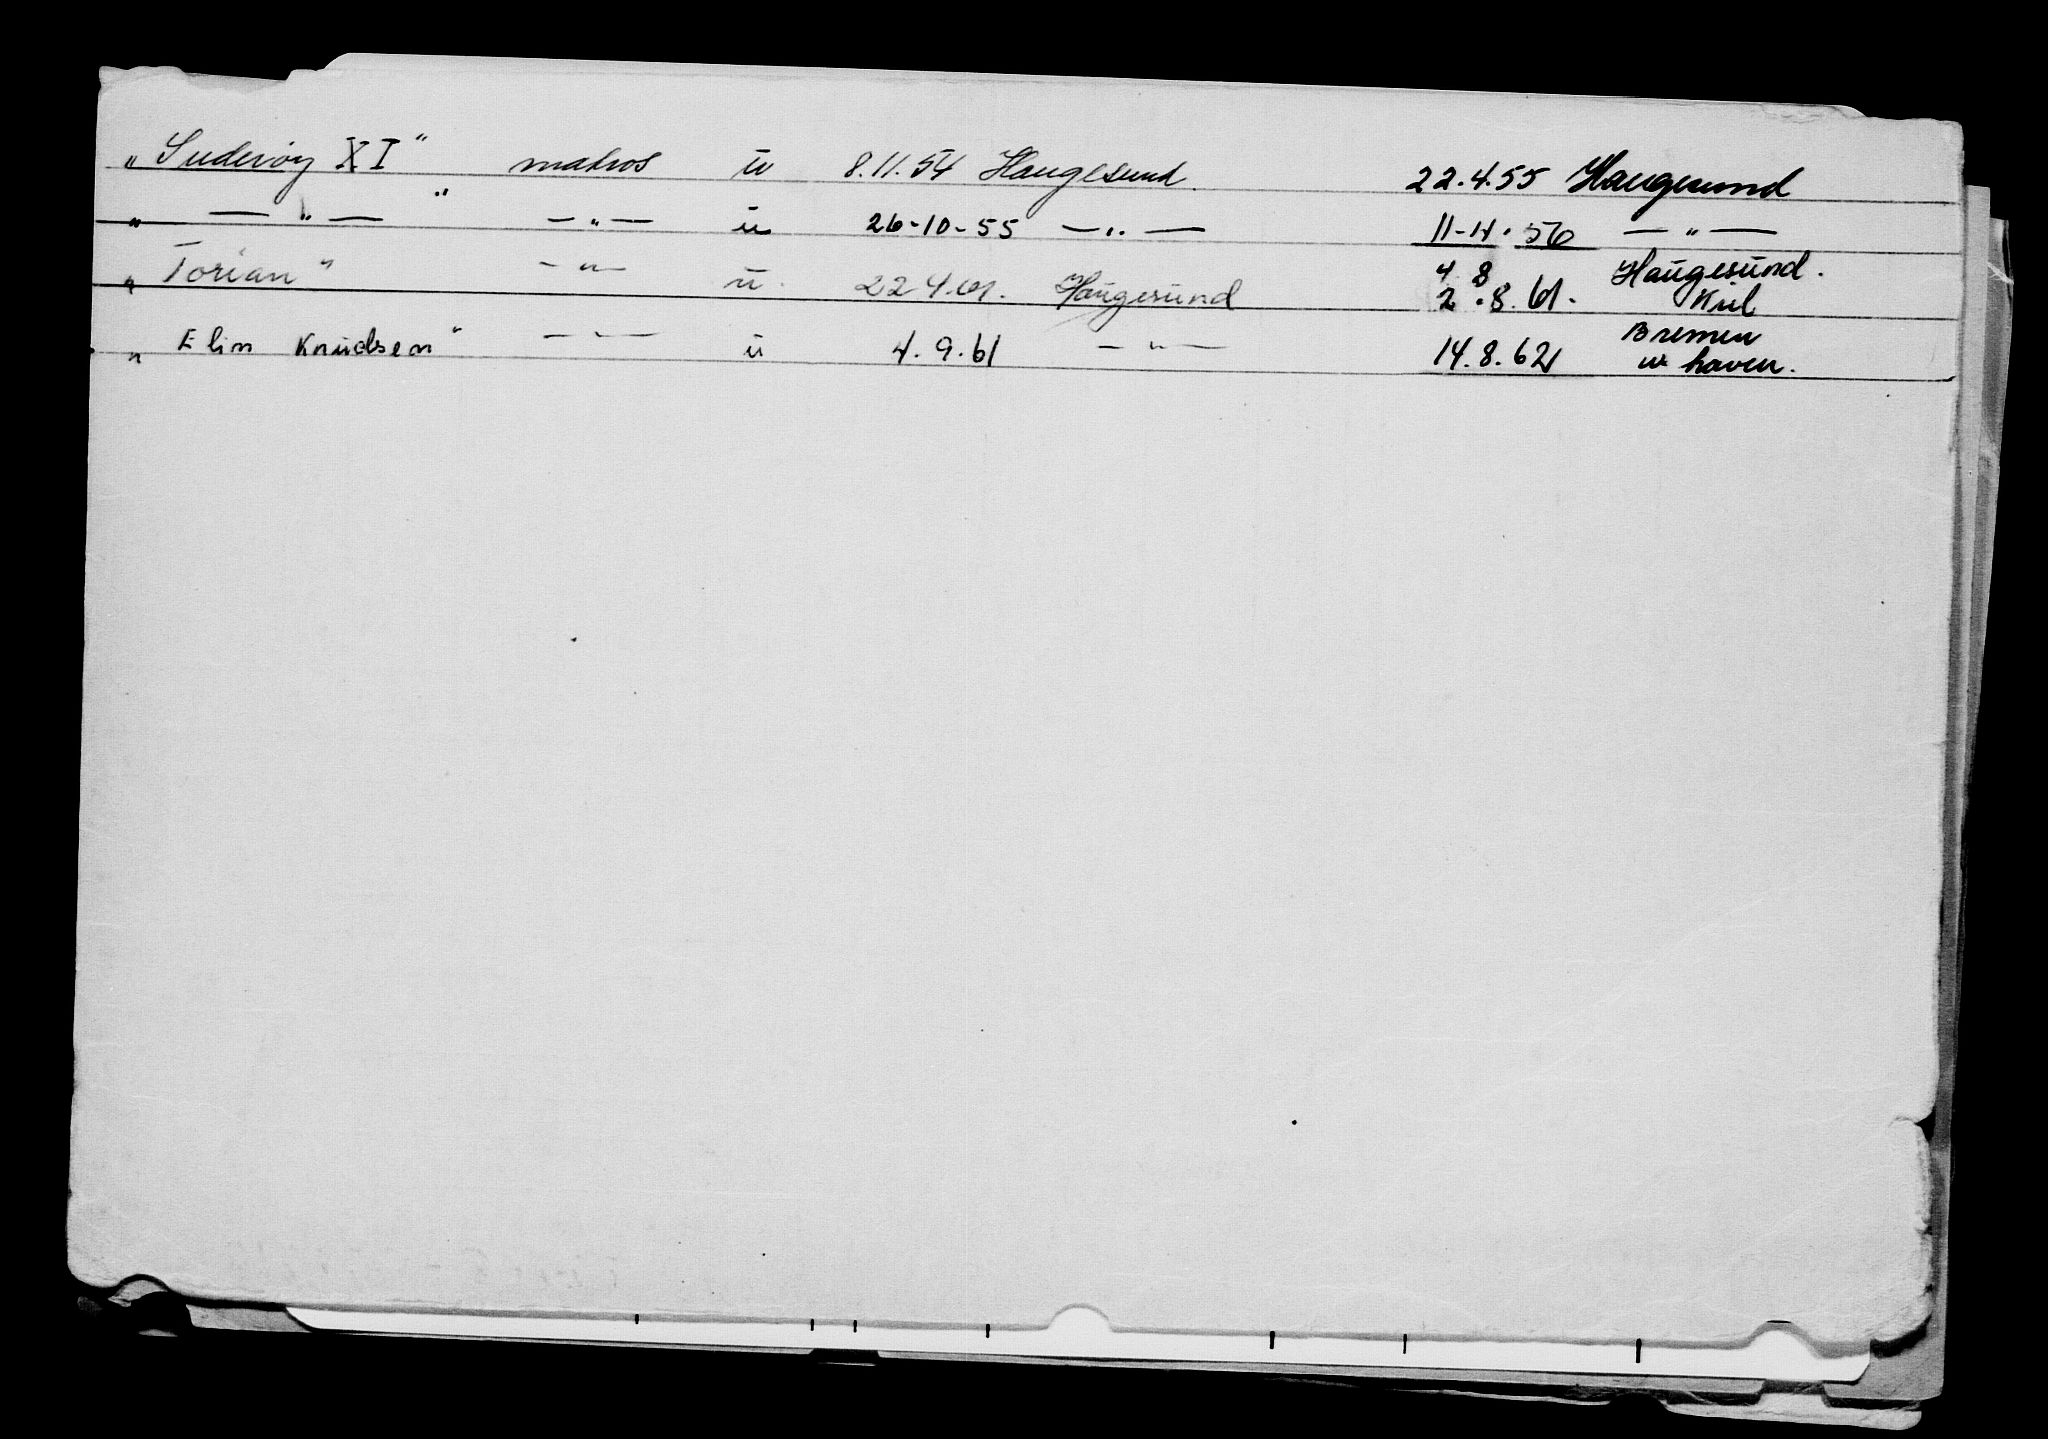 „ Suderøy XI " matros u 8.11.54 Haugesund. 22.4.55 Haugesund
„ — " — " — " — u 26-10-55 — " — 11-4.56 — " —
„ Torian " — " — u. 22.4.61. Haugesund 4.8 Haugesund.
2.8.61. Kiel
„ Elin Knudsen " — " — u 4.9.61 — " — 14.8.62 Bremen
haven.